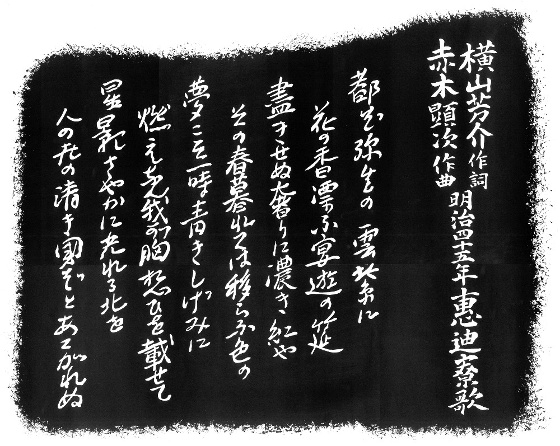 横山芳介作詞
赤木顕次作曲
明治四十五年恵迪寮歌
都ぞ弥生の雲紫に
花の香漂ふ宴遊の筵
盡きせぬ奢りに濃き紅や
その春暮れては移らふ色の
夢こそ一時青きしげみに
燃えなん我が胸想ひを載せて
星影さやかに光れる北を
人の世の清き國ぞとあこがれぬ